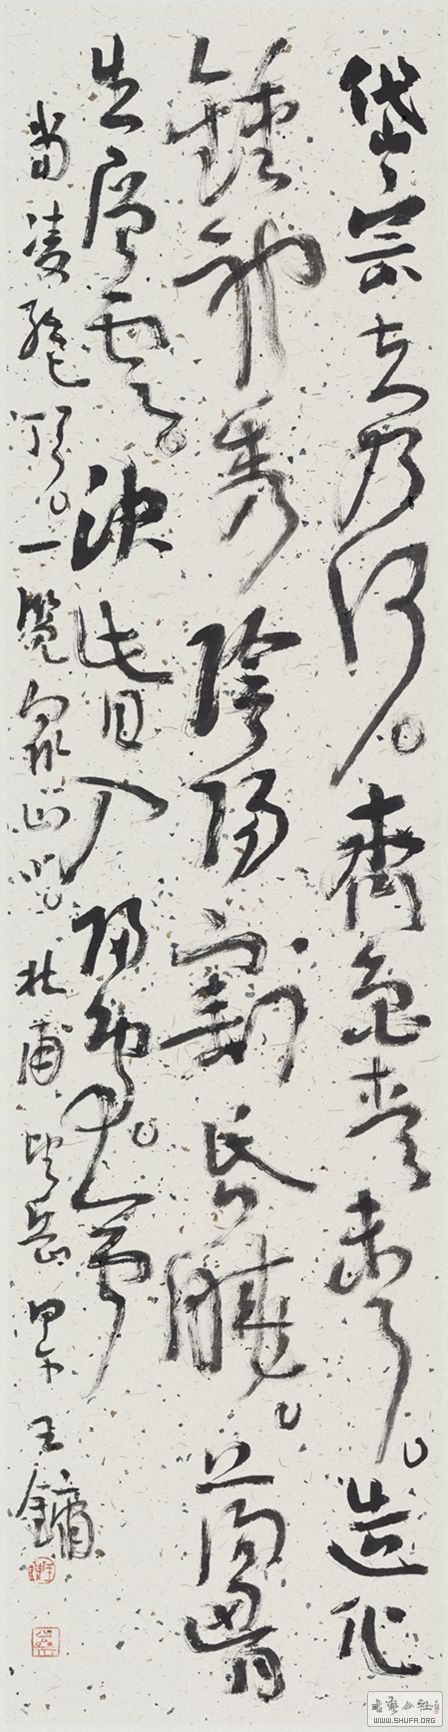 岱宗夫如何。齊魯青未了。造化
鍾神秀陰陽割昏曉。蕩胷
生層雲。決眥入歸鳥。會
當凌絕頂。一覽眾山小。杜甫望岳 甲午 王鏞
書藝公社
WWW.SHUFA.ORG